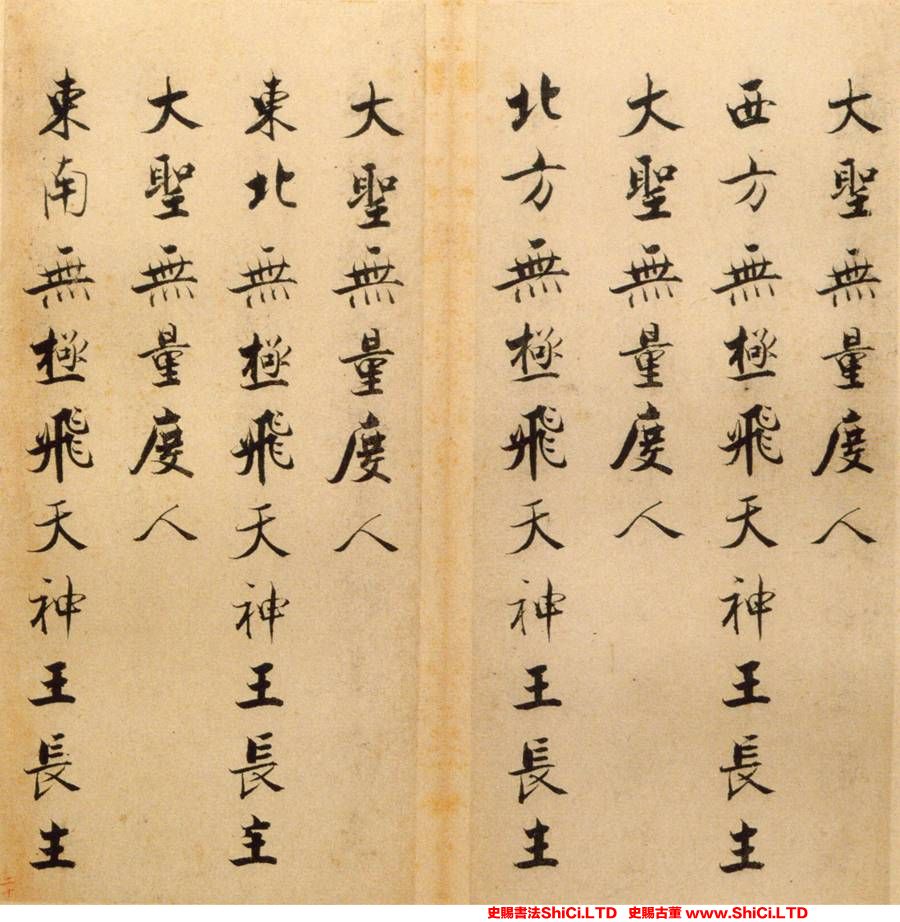 大聖無量度人
西方無極飛天神王長主
大聖無量度人
北方無極飛天神王長主
大聖無量度人
東北無極飛天神王長主
大聖無量度人
東南無極飛天神王長主
二十
史賜書法ShiCi.LTD 史賜古董 www.ShiCi.LTD